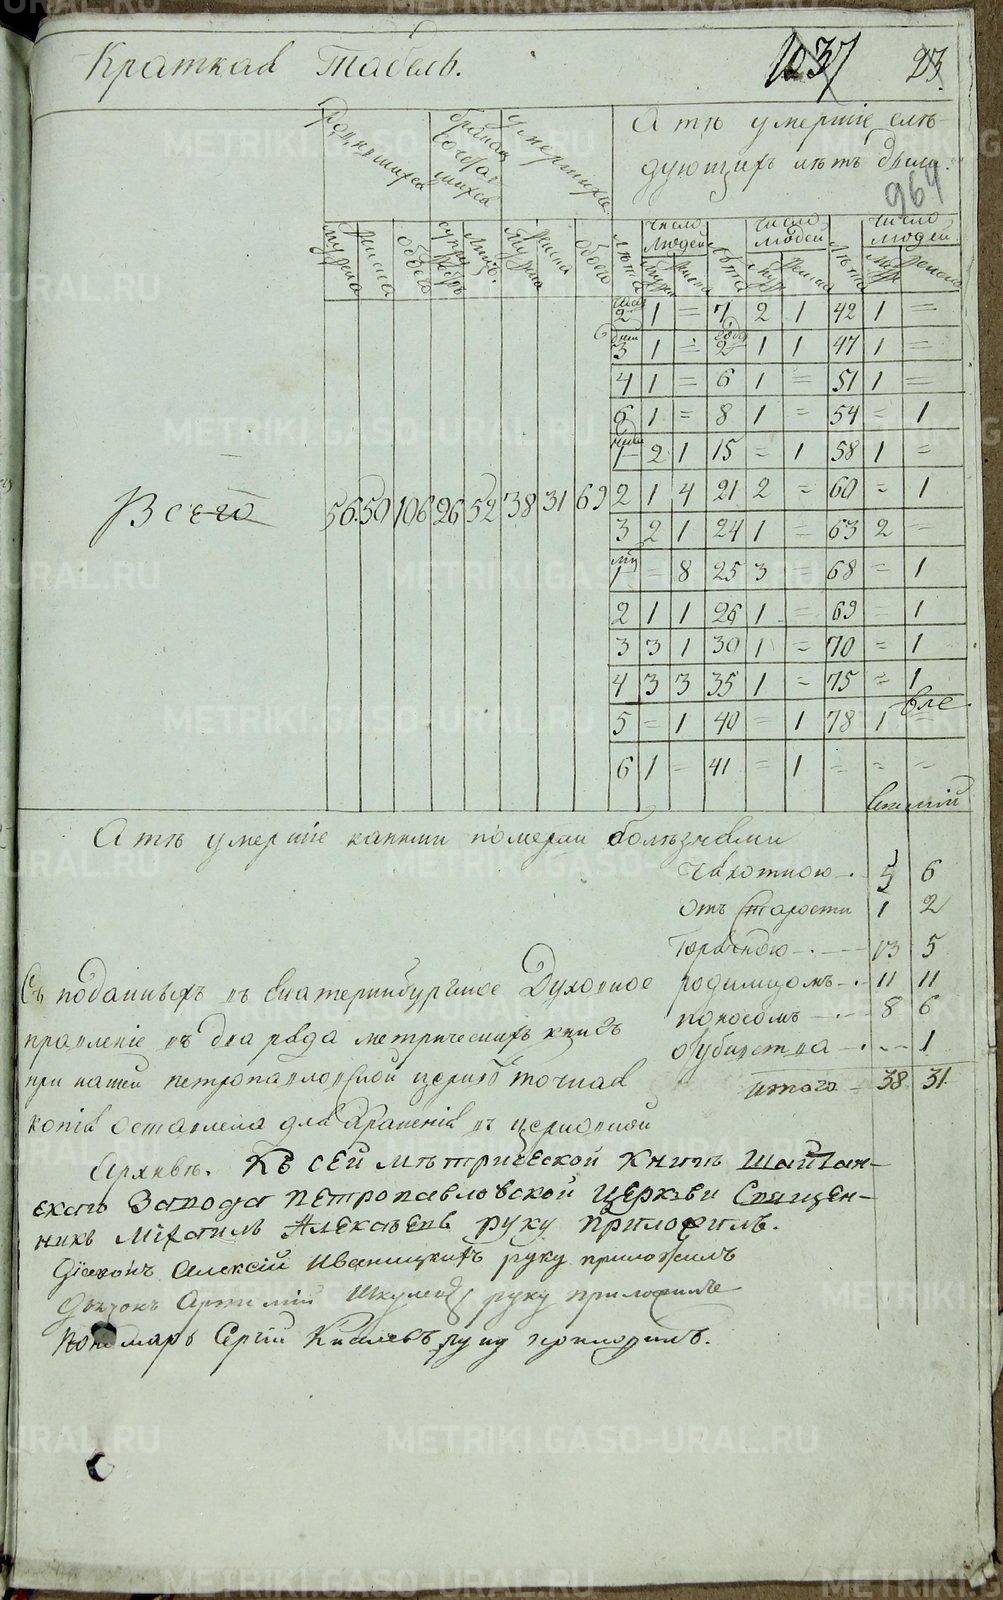 Краткая Табель.
1037
23
964
Родившихся
бракап сочетавшихся
Умершихъ
А тѣ умершіе слѣ-
дующихъ лѣтъ были.
мужеска
женска
обоего
супружествъ
лицъ
мужеска
женска
обоего
лѣта
число людей
муж
женска
лѣта
число людей
муж
женска
лѣта
число людей
муж
женска
2 1 = 7 2 1 42 1 =
дни годы
3 1 = 2 1 1 47 1 =
4 1 = 6 1 = 51 1 =
6 1 = 8 1 = 54 = 1
нѣди
1 2 1 15 = 1 58 1 =
Всего 56 50 106 26 52 38 31 69 2 1 4 21 2 = 60 = 1
3 2 1 24 1 = 63 2 =
мц
1 = 8 25 3 = 68 = 1
2 1 1 26 1 = 69 = 1
3 3 1 30 1 = 70 = 1
4 3 3 35 1 = 75 = 1
5 = 1 40 = 1 78 1 =
6 1 = 41 = 1 = = =
А тѣ умершіе какими померли болѣзнями
Чахотною 5 6
отъ старости 1 2
Горячкою 13 5
родимцомъ 11 11
поносомъ 8 6
убивства 1
итого 38 31
Съ поданныхъ въ Екатеринбургское Духовное
правленіе въ два ряда метрическихъ книгъ
при нашей петропавловской церквѣ точная
копія оставлена для храненія въ церковной
Архивѣ. Къ сей мѣтрической книгѣ Шайтан-
скаго Завода Петропавловской церкви Священ-
никъ Михаилъ Алексѣевъ руку приложилъ.
Діаконъ Алексій Иваницкихъ руку приложилъ
Дьячокъ Артемій руку приложилъ
Пономарь Сергій Киселевъ руку приложилъ.
METRIKI.GASO-URAL.RU